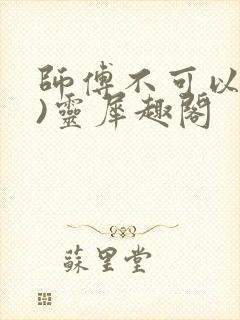 師傅不可以
)靈犀趣閣
蘇里堂